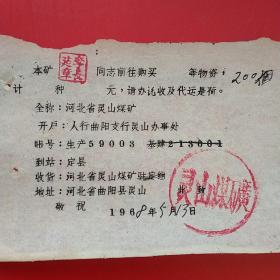 本矿 同志前往购买 年物资：200捆
计 种 元，请办讬收及代运是荷。
全称：河北省灵山煤矿
开户：人行曲阳支行灵山办事处
帐号：生产59003 基建213001
到站：定县
收货：河北省灵山煤矿驻定组
地址：河北省曲阳县灵山 此致
敬祝 1968年5月13日
灵山煤矿